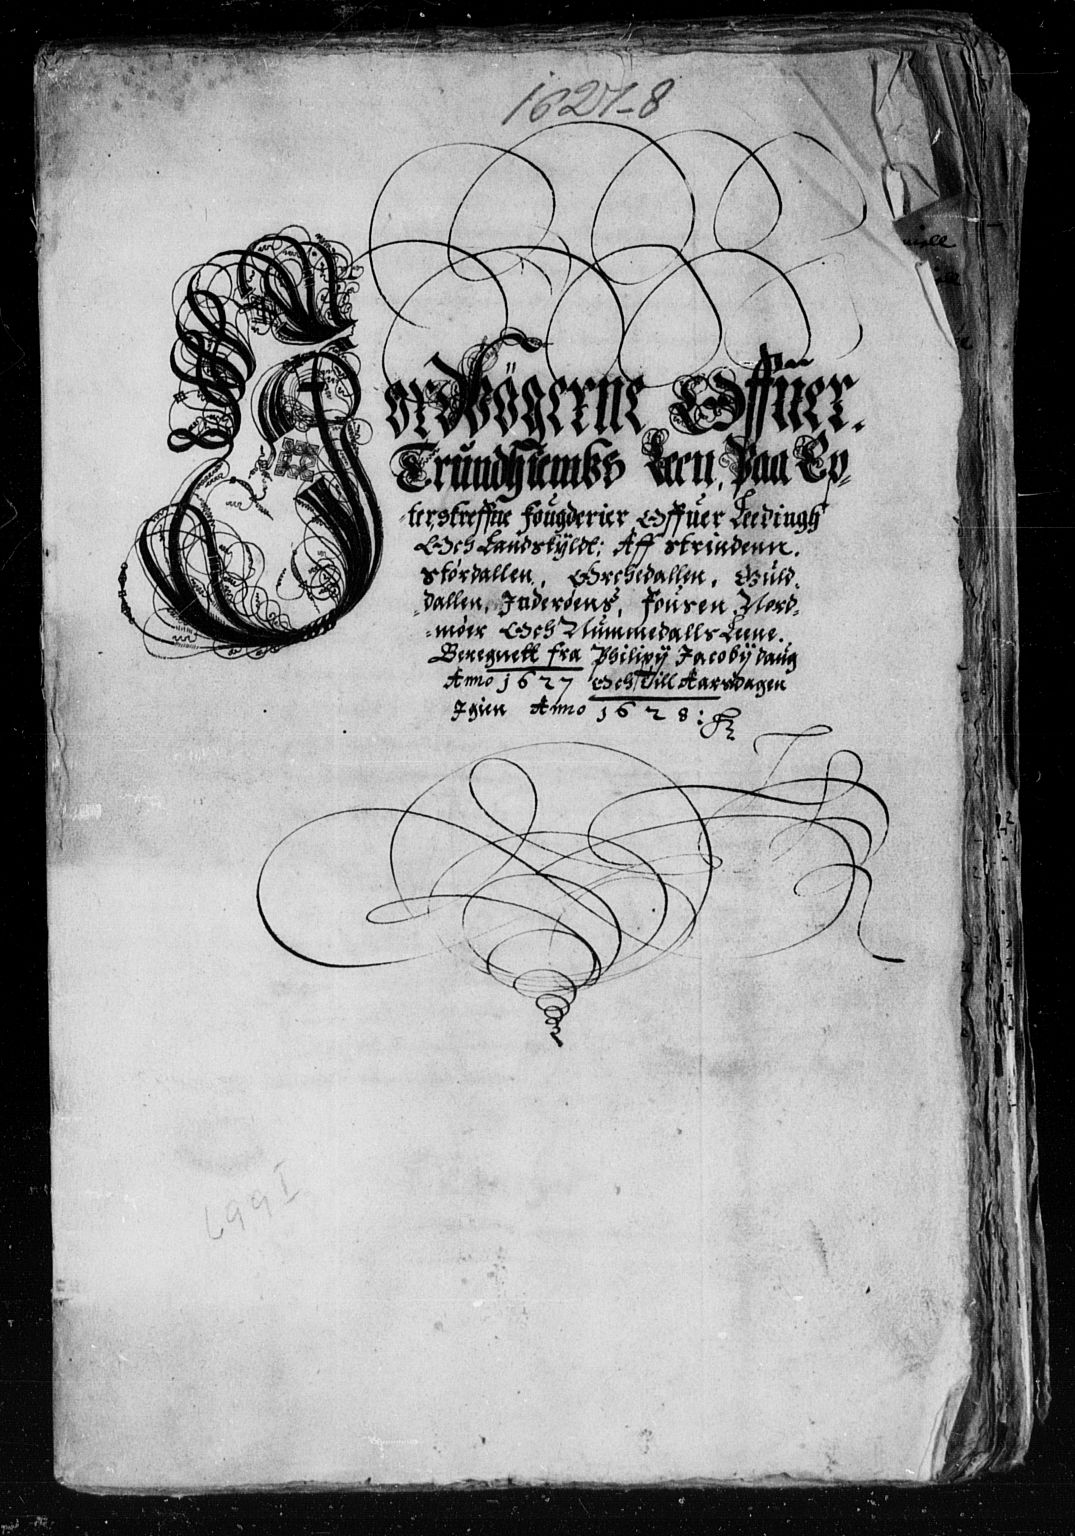 1627-8
JordBögerne Offŭer.
Trŭndhiembs Leen, Paa Ep-
terstreffne fougderier Offŭer Leedingh
Och Landskÿldt; Aff strindenn.
størdallen, Orchedallen, Gŭld-
dallen, Inderøens, fousen Nord-
møer Och Nŭmmedalls Leene.
Beregnett fra Philipÿ Jacobÿ daug
Anno 1627 Och Till Aarsdagen
Igien Anno 1628:
1667